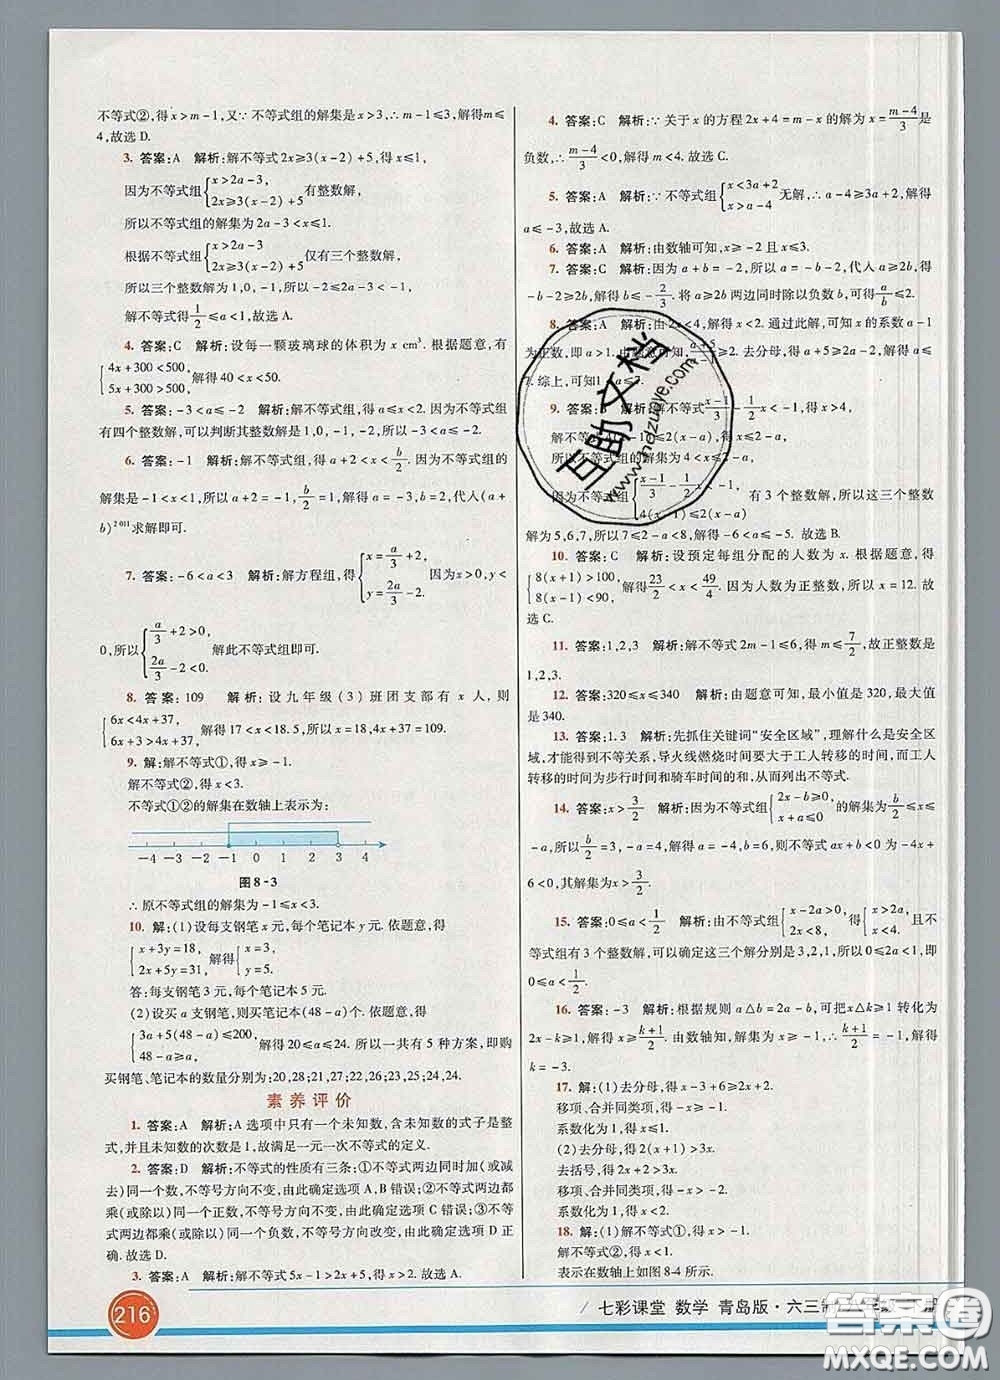 不等式②,得x>m-1,又∵不等式组的解集是x>3,∴m-1≤3,解得m≤
4,故选D.
3. 答案:A 解析:解不等式2x≥3(x-2)+5,得x≤1,
因为不等式组{x>2a-3, 2x≥3(x-2)+5 有整数解,
所以不等式组的解集为2a-3<x≤1.
根据不等式组{x>2a-3 2x≥3(x-2)+5 仅有三个整数解,
所以三个整数解为1,0,-1,所以-2≤2a-3<-1,
解不等式得1/2≤a<1,故选A.
4. 答案:C 解析:设每一颗玻璃球的体积为x cm³.根据题意,有
{4x+300<500, 5x+300>500, 解得40<x<50.
5. 答案:-3<a≤-2 解析:解不等式组,得a≤x<2.因为不等式组
有四个整数解,可以判断其整数解为1,0,-1,-2,所以-3<a≤-2.
6. 答案:-1 解析:解不等式组,得a+2<x<b/2.因为不等式组的
解集是-1<x<1,所以a+2=-1,b/2=1,解得a=-3,b=2,代人(a+
b)²⁰¹¹求解即可.
7. 答案:-6<a<3 解析:解方程组,得{x=a/3+2, y=2a/3-2. 因为x>0,y<
0,所以{a/3+2>0, 2a/3-2<0. 解此不等式组即可.
8. 答案:109 解析:设九年级(3)班团支部有x人,则
{6x<4x+37, 6x+3>4x+37, 解得17<x<18.5,所以x=18,4x+37=109.
9. 解:解不等式①,得x<3.
解不等式②,得x≥-1.
不等式①②的解集在数轴上表示为:
-4 -3 -2 -1 0 1 2 3 4
图8-3
∴原不等式组的解集为-1≤x<3.
10. 解:(1)设每支钢笔x元,每个笔记本y元.依题意,得
{x+3y=18, 2x+5y=31, 解得{x=3, y=5.
答:每支钢笔3元,每个笔记本5元.
(2)设买a支钢笔,则买笔记本(48-a)个.依题意,得
{3a+5(48-a)≤200, 48-a≥a, 解得20≤a≤24.所以一共有5种方案,即购
买钢笔、笔记本的数量分别为:20,28;21,27;22,26;23,25;24,24.
素养评价
1. 答案:A 解析:A选项中只有一个未知数,含未知数的式子是整
式,并且未知数的次数是1,故满足一元一次不等式的定义.
2. 答案:D 解析:不等式的性质有三条:①不等式两边同时加(或减
去)同一个数,不等号方向不变,由此确定选项A,B错误;②不等式两边都
乘(或除以)同一个正数,不等号方向不变,由此确定选项C错误;③不等
式两边都乘(或除以)同一个负数,不等号方向改变,由此确定选项D正
确.故选D.
3. 答案:A 解析:解不等式5x-1>2x+5,得x>2.故选A.
4. 答案:C 解析:∵关于x的方程2x+4=m-x的解为x=(m-4)/3是
负数,∴(m-4)/3<0,解得m<4.故选C.
5. 答案:A 解析:∵不等式组{x<3a+2 x>a-4 无解,∴a-4≥3a+2,解得
a≤-3,故选A.
6. 答案:A 解析:由数轴可知,x≥-2且x≤3.
7. 答案:C 解析:因为a+b=-2,所以a=-b-2,代人a≥2b,得
-b-2≥2b,解得b≤-2/3.将a≥2b两边同时除以负数b,可得a/b≤2.
8. 答案:A 解析:由2x<4,解得x<2.通过此解,可知x的系数a-1
为正数,即a>1.由题意可知,(a+5)/(a-1)≥2.去分母,得a+5≥2a-2,解得a≤
7.综上,可知1<a≤7.
9. 答案:B 解析:解不等式(x-1)/3-1/2x<-1,得x>4,
解不等式4(x-1)≤2(x-a),得x≤2-a,
所以不等式组的解集为4<x≤2-a.
因为不等式组{(x-1)/3-1/2x<-1, 4(x-1)≤2(x-a) 有3个整数解,所以这三个整数
解为5,6,7,所以7≤2-a<8,解得-6<a≤-5.故选B.
10. 答案:C 解析:设预定每组分配的人数为x.根据题意,得
{8(x+1)>100, 8(x-1)<90, 解得23/2<x<49/4.因为人数为正整数,所以x=12.故
选C.
11. 答案:1,2,3 解析:解不等式2m-1≤6,得m≤7/2,故正整数是
1,2,3.
12. 答案:320≤x≤340 解析:由题意可知,最小值是320,最大值
是340.
13. 答案:1.3 解析:先抓住关键词“安全区域”,理解什么是安全区
域,才能得到不等关系,导火线燃烧时间要大于工人转移的时间,而工人
转移的时间为步行时间和骑车时间的和,从而列出不等式.
14. 答案:x>3/2 解析:因为不等式组{2x-b≥0, x+a≤0 的解集为b/2≤x≤
-a,所以b/2=3,-a=4,解得a=-4,b=6,则不等式ax+b<0为-4x+
6<0,其解集为x>3/2.
15. 答案:0≤a<1/2 解析:由不等式组{x-2a>0, 2x<8, 得{x>2a, x<4. 且不
等式组有3个整数解,可以确定这三个解分别是3,2,1,所以0≤2a<1,即
0≤a<1/2.
16. 答案:-3 解析:根据规则a△b=2a-b,可把x△k≥1转化为
2x-k≥1,解得x≥(k+1)/2.由数轴知,解集为x≥-1,∴(k+1)/2=-1,解得
k=-3.
17. 解:(1)去分母,得x-3+6≥2x+2.
移项、合并同类项,得-x≥-1.
系数化为1,得x≤1.
(2)去分母,得
去括号,得
移项、合并同类项,得
系数化为1,得
18. 解:(1)解不等式①,得x>-1.
解不等式②,得x<1.
表示在数轴上如图8-4所示.
216
七彩课堂 数学 青岛版·六三制
互助文档
www.hdzuoye.com
答案圈
MXQE.COM